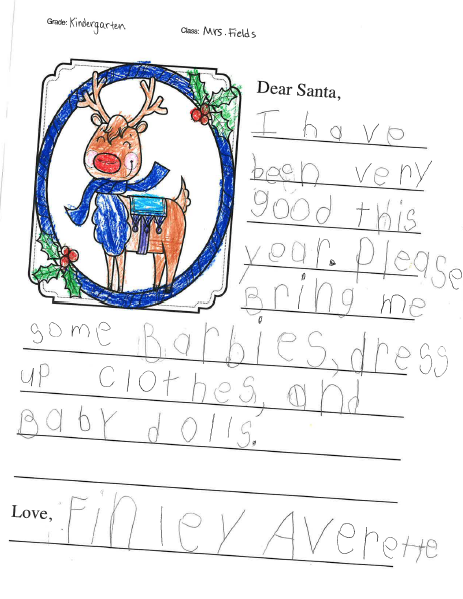 Grade: Kindergarten
Class: Mrs. Fields
Dear Santa,
I have
been very
good this
year. Please
Bring me
some Barbies, dress
up clothes, and
Baby dolls.
Love, Finley Averette